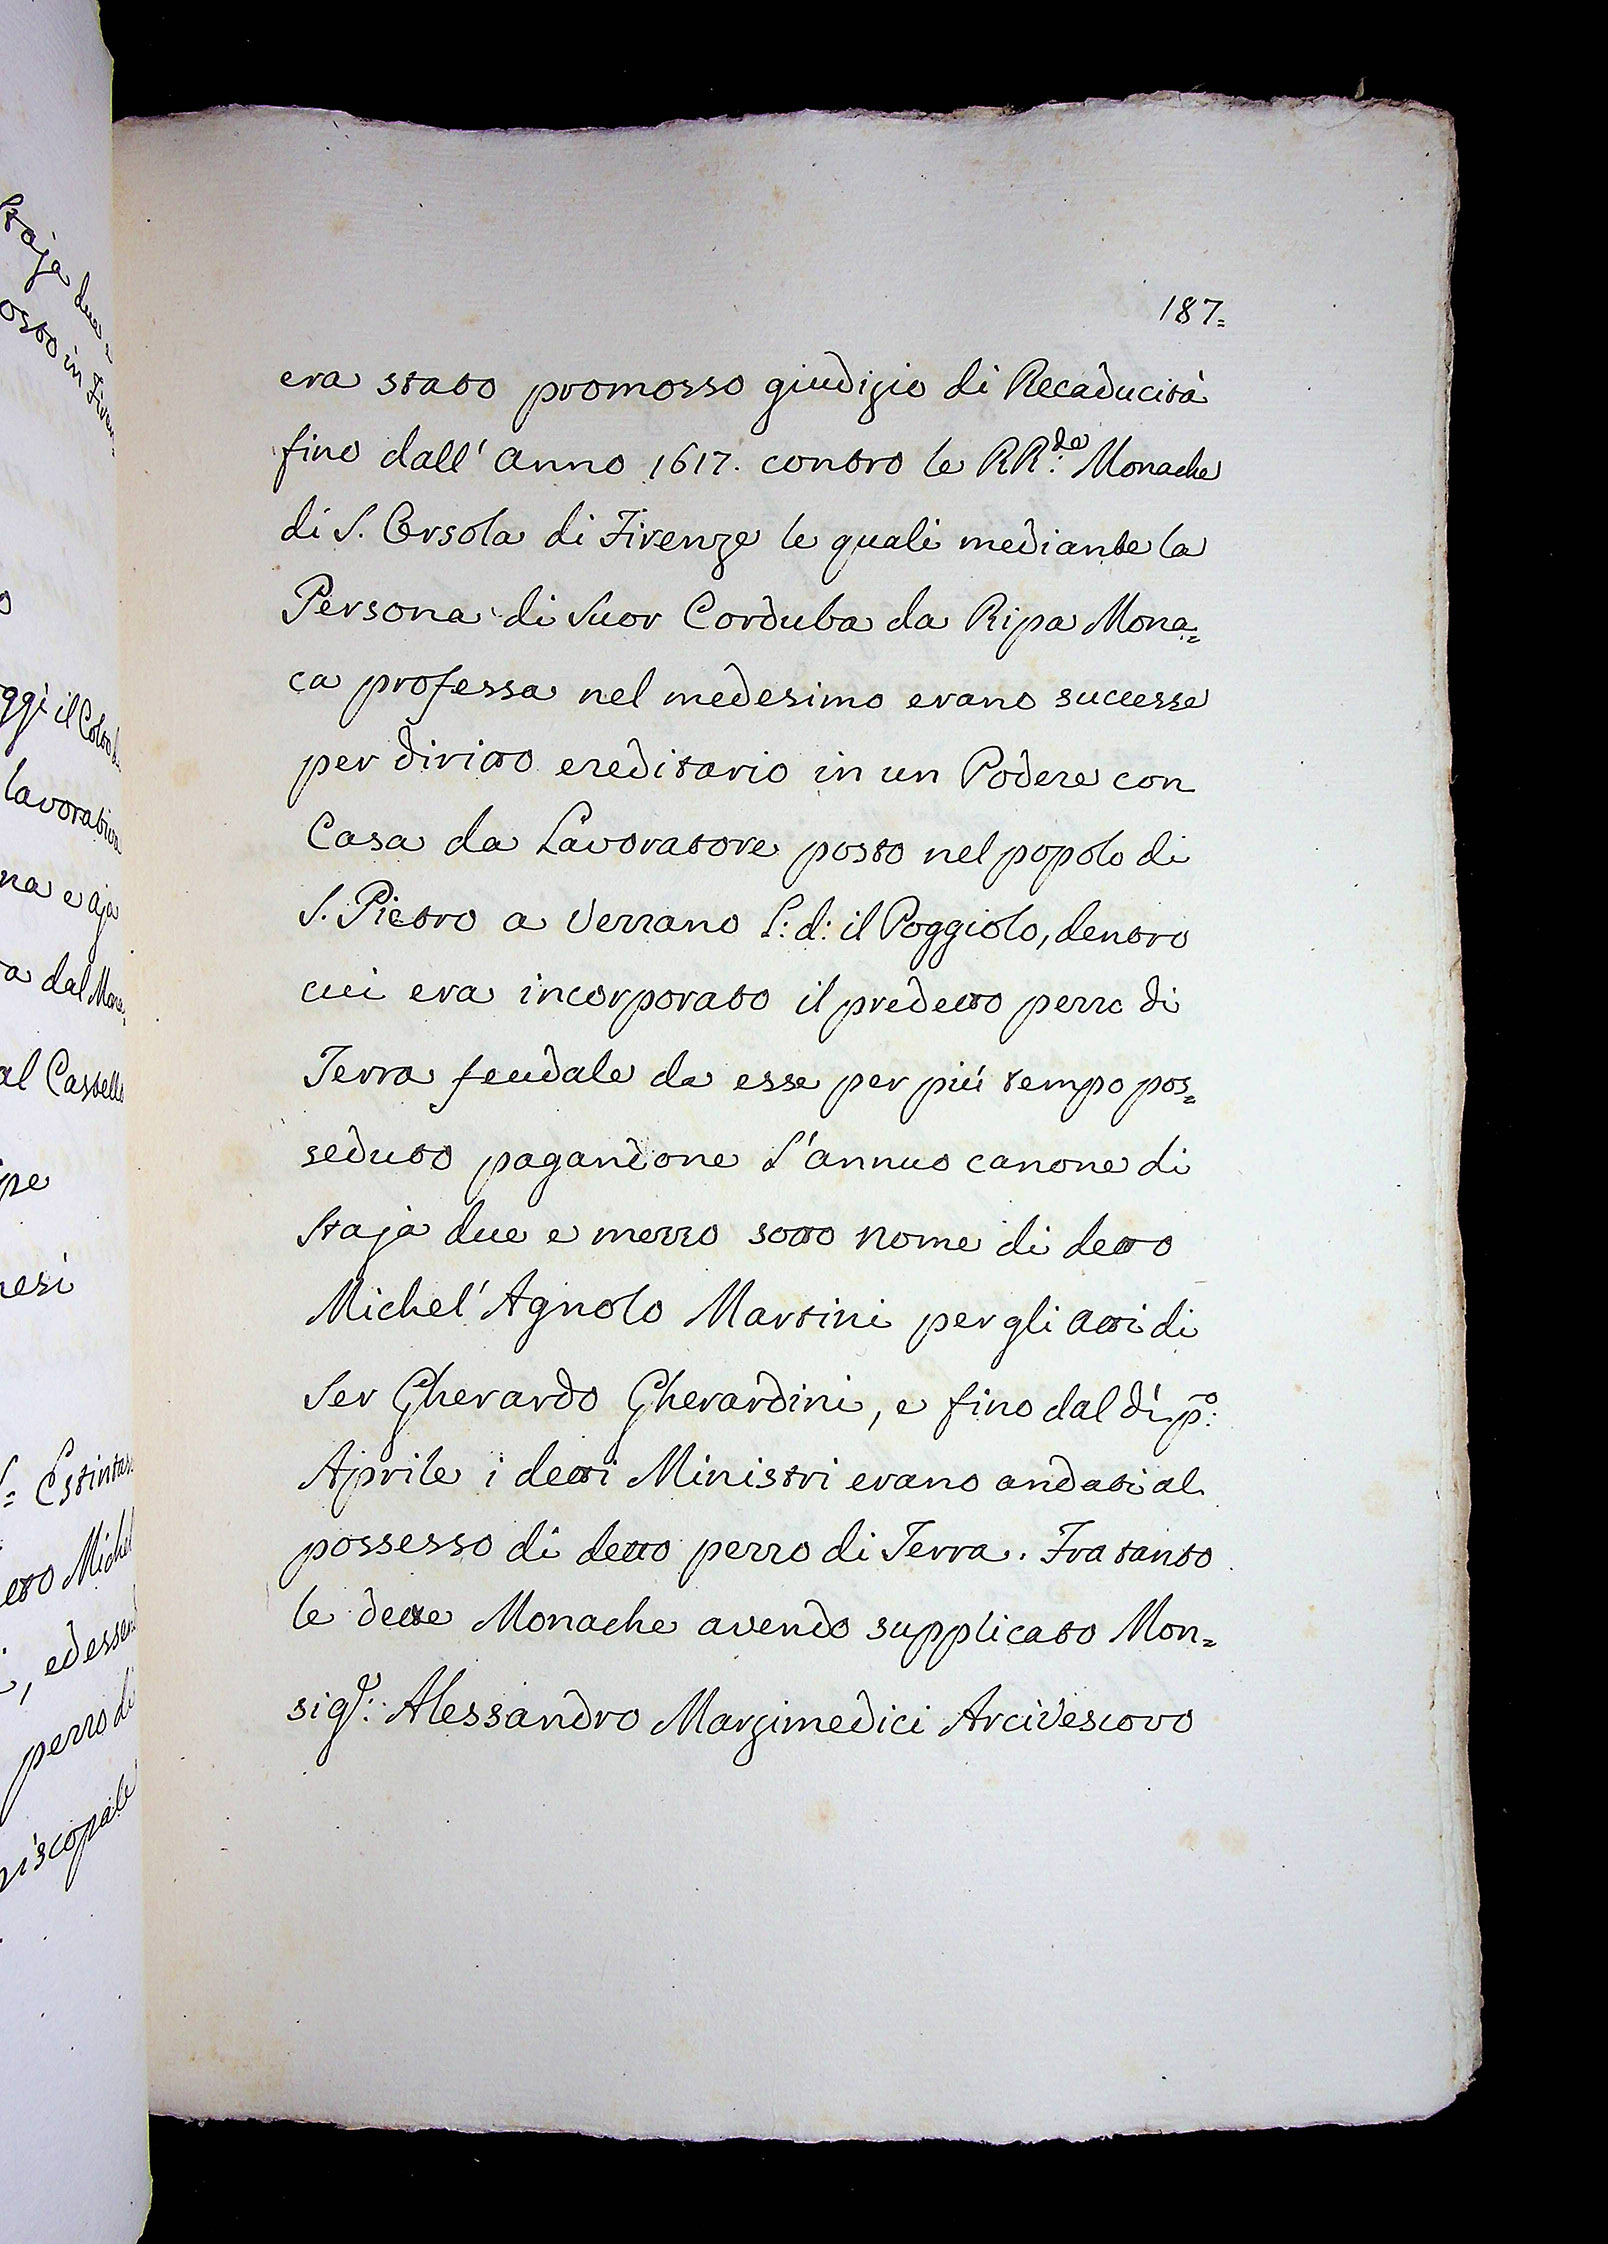 187=
era stato promosso giudizio di Recaducità
fino dall' anno 1617. contro le RR.de Monache
di S. Orsola di Firenze le quali mediante la
Persona di Suor Corduba da Ripa Mona=
ca professa nel medesimo erano successe
per diritto ereditario in un Podere con
Casa da Lavoratore posto nel popolo di
S. Pietro a Verrano L: d: il Poggiolo, dentro
cui era incorporato il predetto pezzo di
Terra feudale da esse per più tempo pos=
seduto pagandone l'annuo canone di
Staja due e mezzo sotto nome di detto
Michel' Agnolo Martini per gli atti di
Ser Gherardo Gherardini, e fino dal dì p.o:
Aprile i detti Ministri erano andati al
possesso di detto pezzo di Terra. Fra tanto
le dette Monache avendo supplicato Mon=
sig.r: Alessandro Marzimedici Arcivescovo